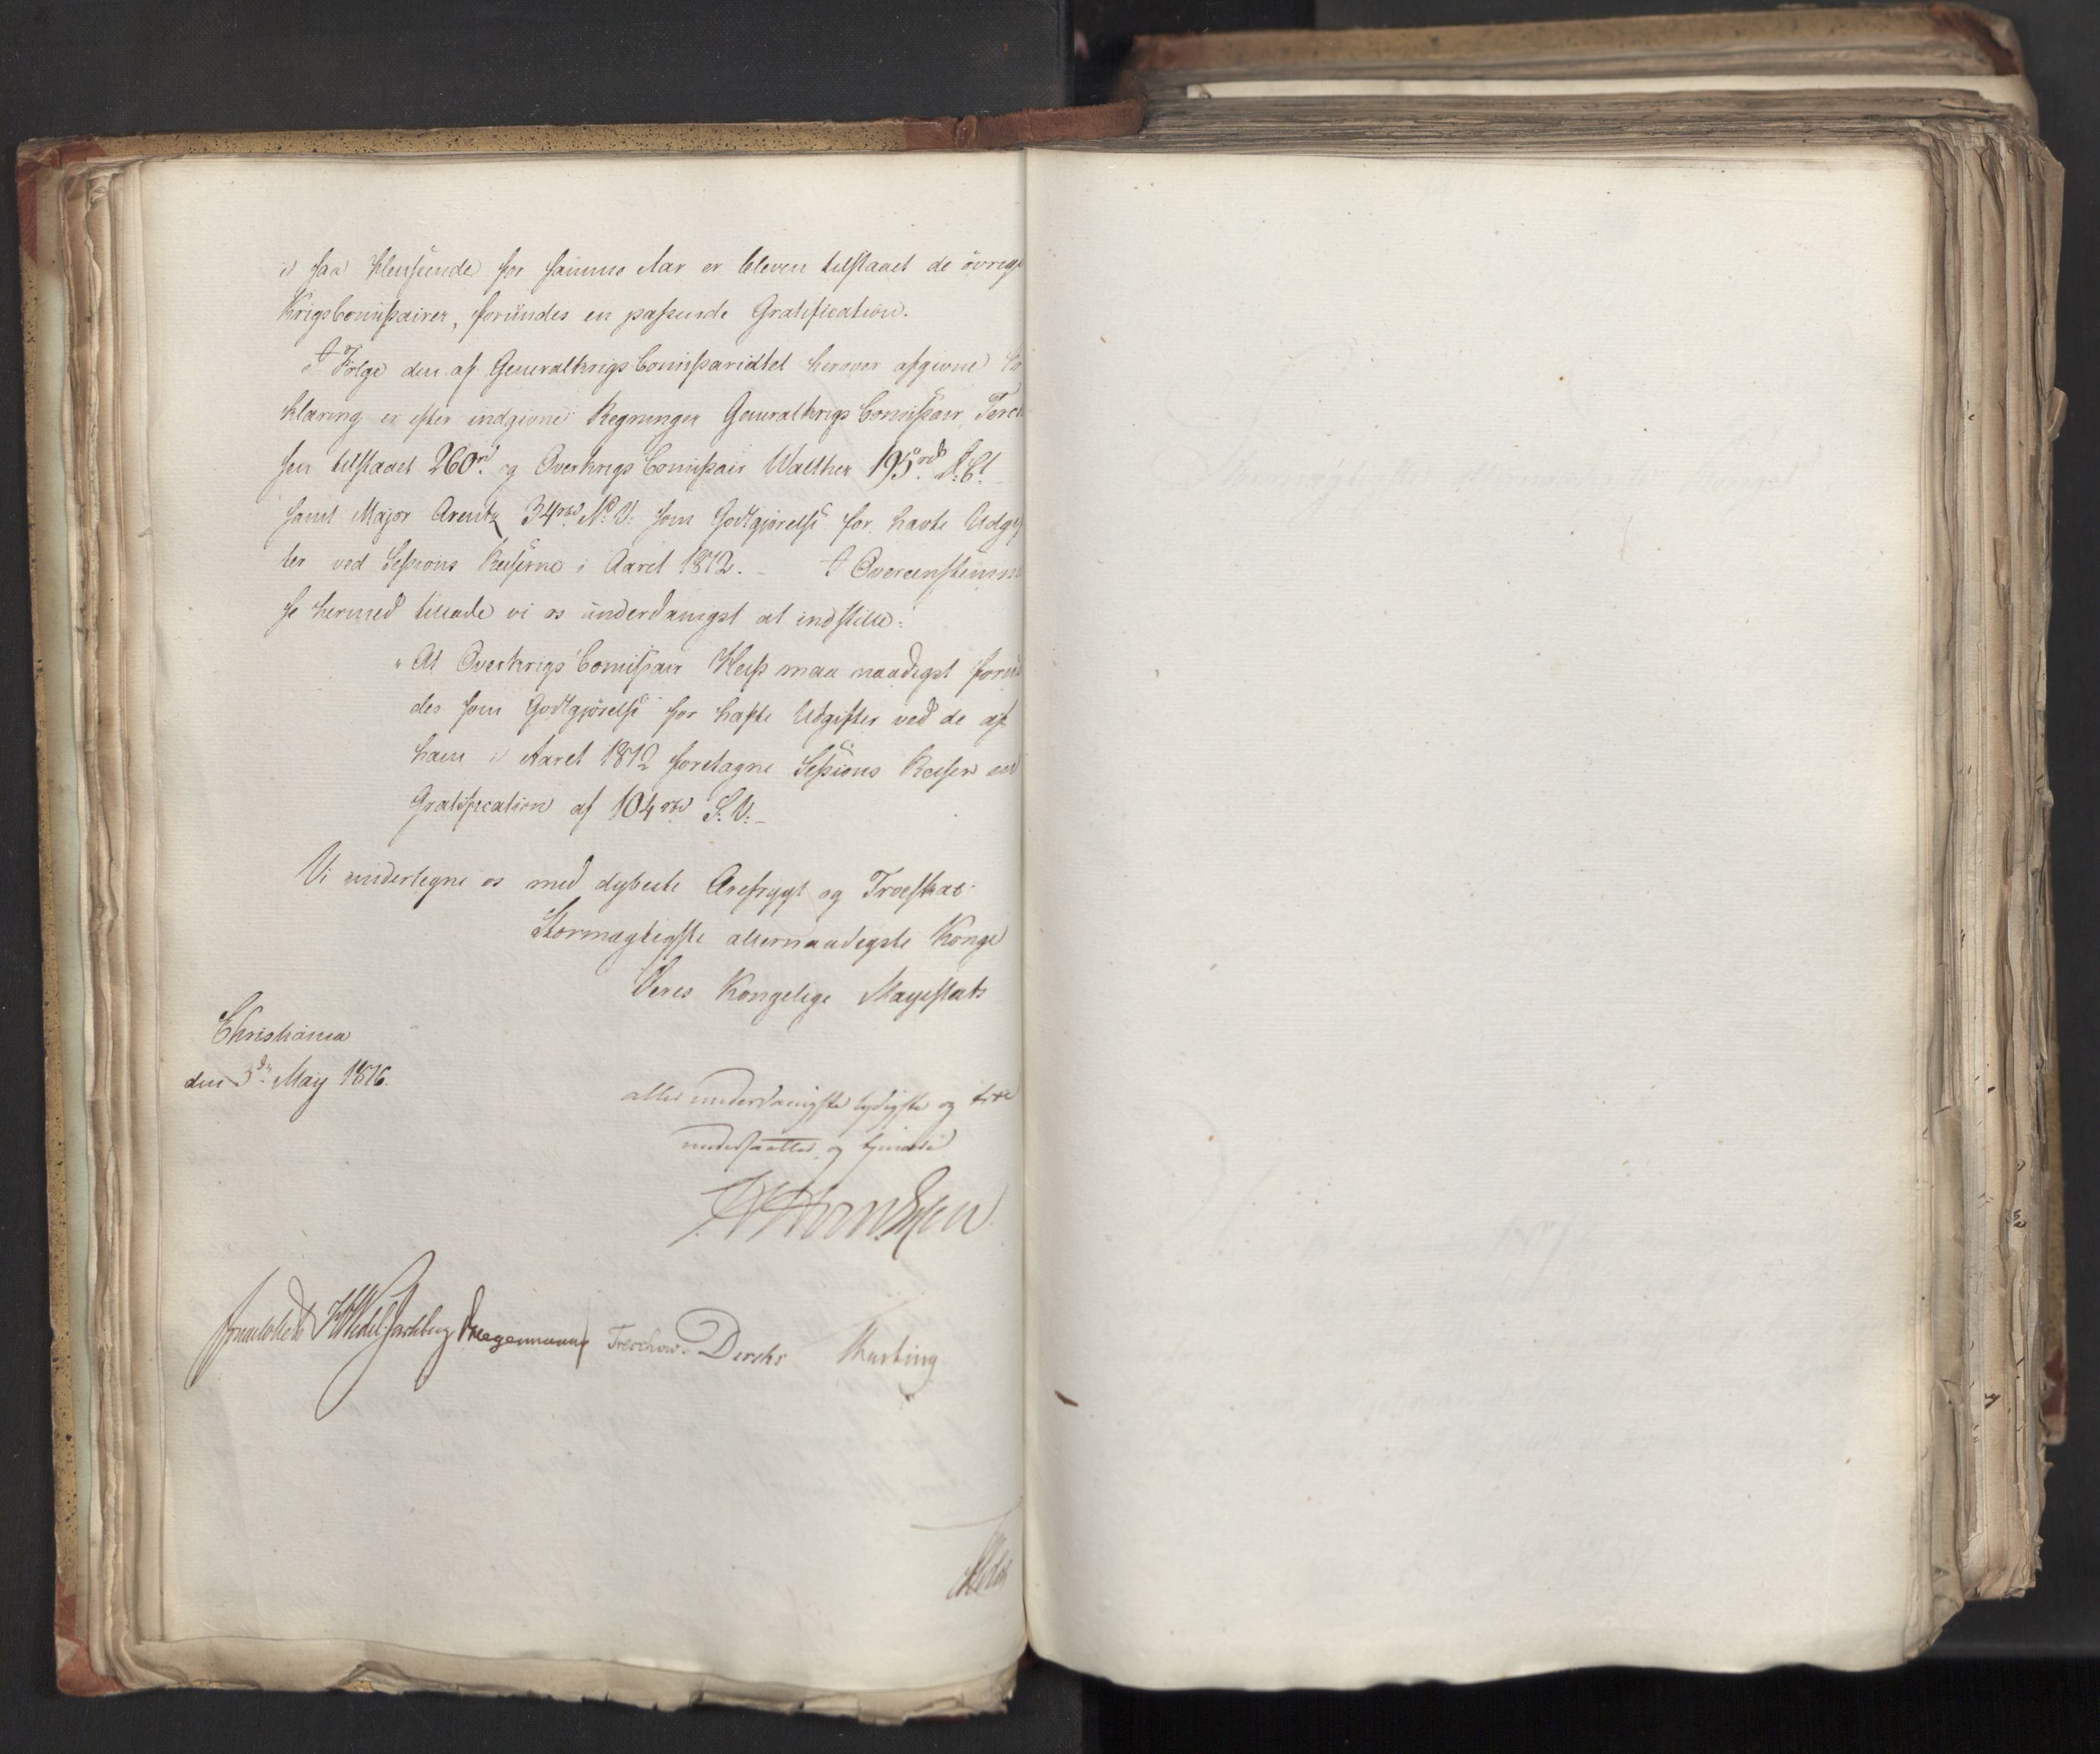 i saa Henseende for samme Aar er bleven tilstaaet de övrige
KrigsCommissairer, forundes en passende Gratification.
I Følge den af GeneralkrigsCommissariatet herover afgivne
klæring er efter indgivne Regninger GeneralkrigsCommissair
sen tilstaaet 260rd. og OverkrigsCommissair Walther 195rd.
samt Major Arentz 34rbd N.V. som Godtgjørelse for havte Udgif
ter ved Sessions Reiserne i Aaret 1812. – I Overeenstemm
se hermed tillade vi os underdanigst at indstille:
"At OverkrigsCommissair Heiss maa naadigst forun
des som Godtgjörelse for hafte Udgifter ved de af
ham i Aaret 1812 foretagne Sessions Reiser en
Gratification af 104 rbd S.V. –
Vi undertegne os med dybeste Ærefrygt og Troeskab
Stormægtigste allernaadigste Konge
Deres Kongelige Majestæts
Christiania
den 3die May 1816.
allerunderdanigste lydigste og troe
undersaatter og tjenere
Wedel Jarlsberg Krogermann Treschow. Diriks